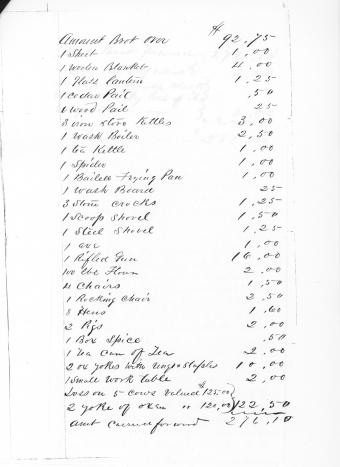 Amount Brot over $ 92,75
1 Shirt 1,00
1 Woolen Blanket 4,00
1 Glass lantern 1,25
1 Cedar Pail ,50
1 Wood Pail 25
3 iron stove Kettles 3,00
1 Wash Boiler 2,50
1 tea Kettle 1,00
1 Spider 1,00
1 Frying Pan 1,00
1 Wash Board 25
3 Stone crocks 1,25
1 Scoop Shovel 1,50
1 Steel Shovel 1,25
1 axe 1,00
1 Rifled Gun 16,00
100 lbs Flour 2,00
4 Chairs 1,50
1 Rocking Chair 2,50
8 Hens 1,60
2 Pigs 2,00
1 Box Spice ,50
1 Tea Can of Tea 2,00
2 ox yokes with rings & Staples 10,00
1 Small work table 2,00
Loss on 5 Cows valued $125,00
2 yoke of oxen " 120,00 122,50
amt carried forward 276,10